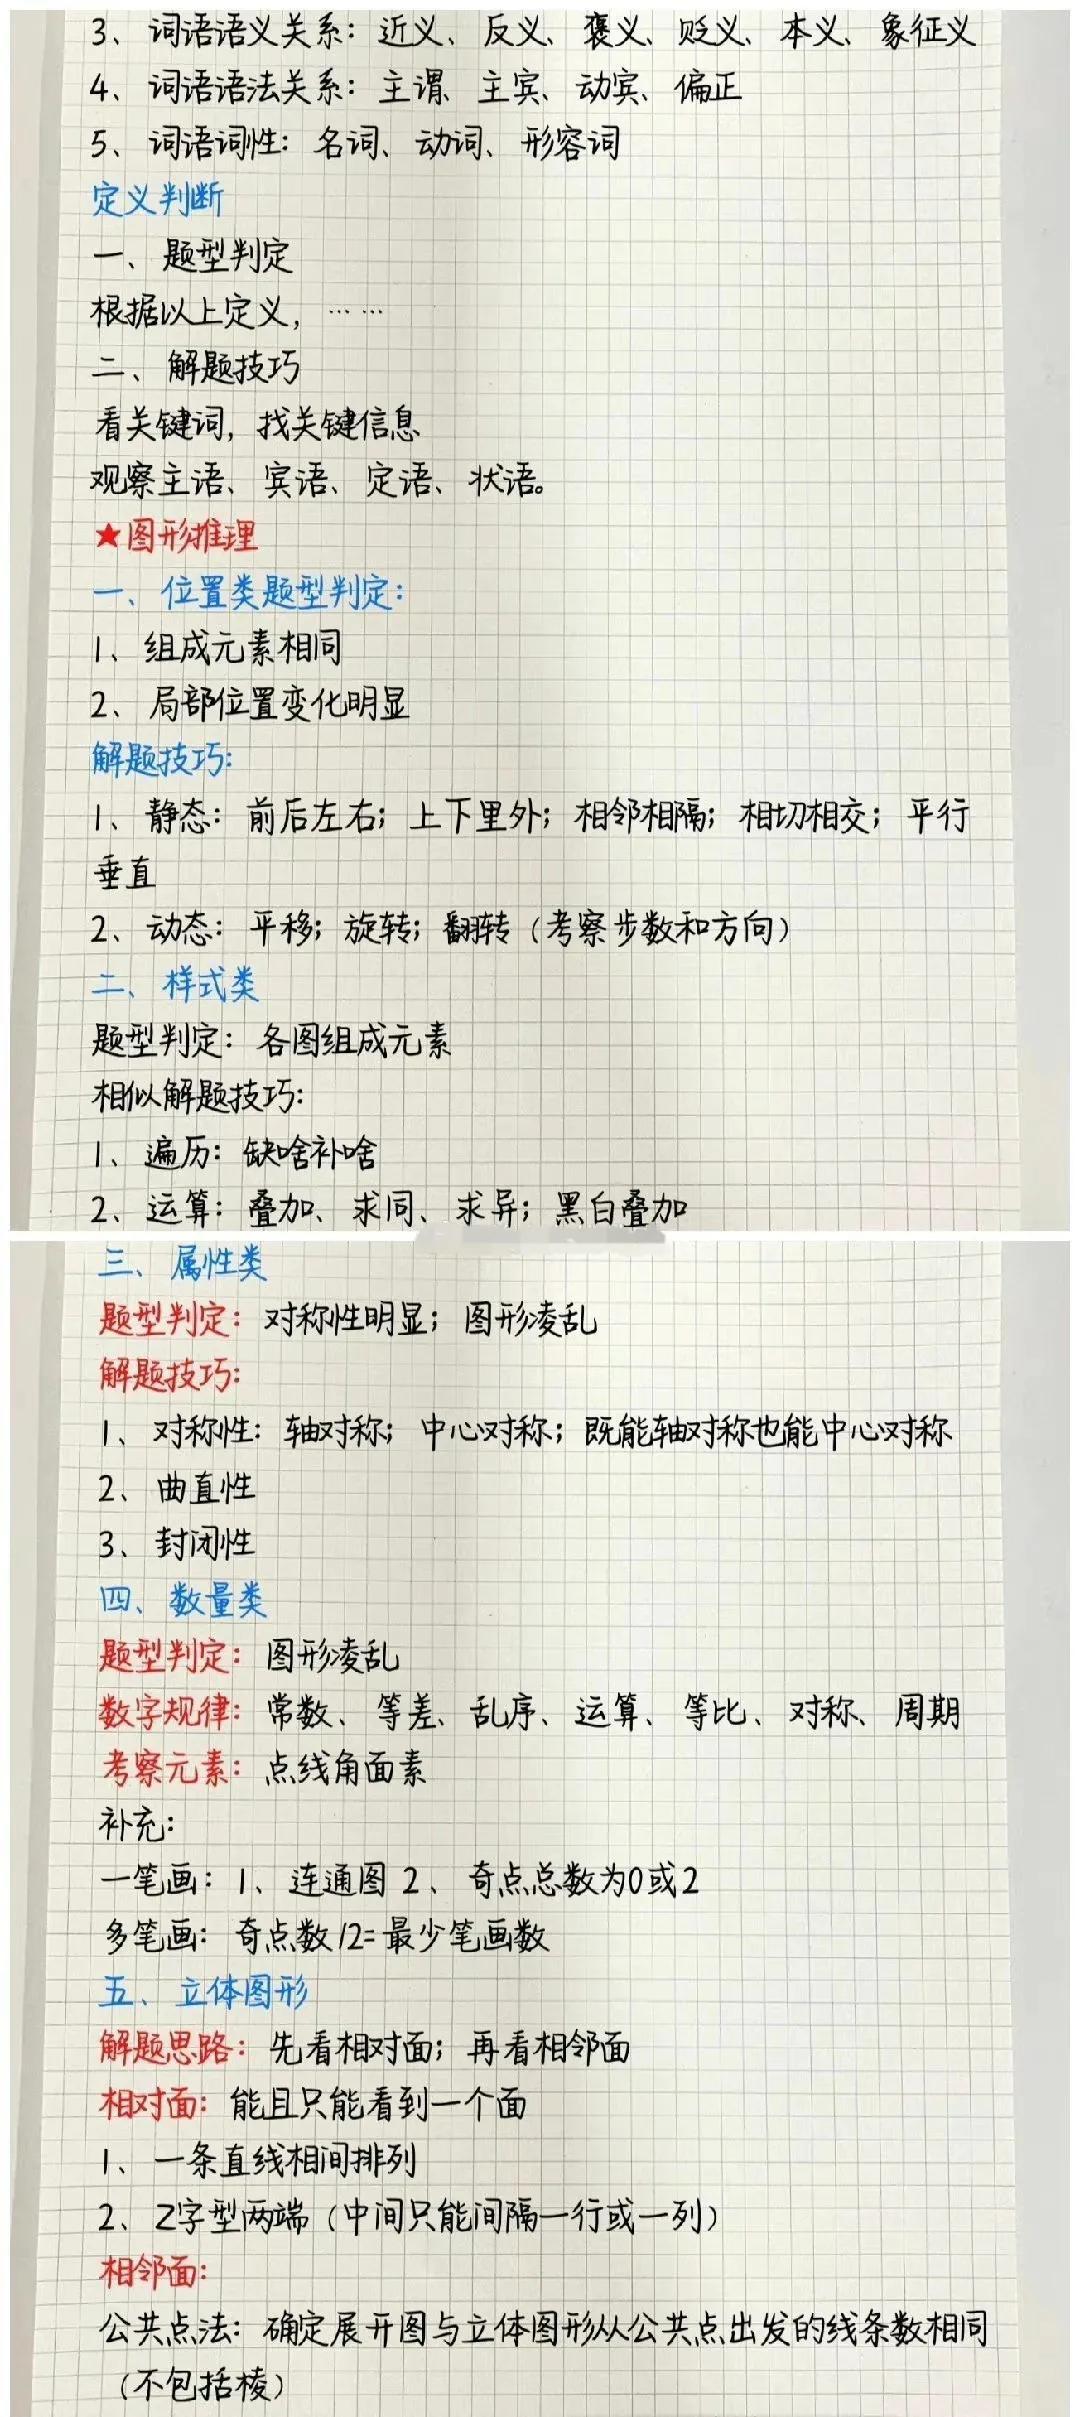 3、词语语义关系：近义、反义、褒义、贬义、本义、象征义
4、词语语法关系：主谓、主宾、动宾、偏正
5、词语词性：名词、动词、形容词
定义判断
一、题型判定
根据以上定义，……
二、解题技巧
看关键词，找关键信息
观察主语、宾语、定语、状语。
★图形推理
一、位置类题型判定：
1、组成元素相同
2、局部位置变化明显
解题技巧：
1、静态：前后左右；上下里外；相邻相隔；相切相交；平行
垂直
2、动态：平移；旋转；翻转（考察步数和方向）
二、样式类
题型判定：各图组成元素
相似解题技巧：
1、遍历：缺啥补啥
2、运算：叠加、求同、求异；黑白叠加
三、属性类
题型判定：对称性明显；图形凌乱
解题技巧：
1、对称性：轴对称；中心对称；既能轴对称也能中心对称
2、曲直性
3、封闭性
四、数量类
题型判定：图形凌乱
数字规律：常数、等差、乱序、运算、等比、对称、周期
考察元素：点线角面素
补充：
一笔画：1、连通图 2、奇点总数为0或2
多笔画：奇点数/2=最少笔画数
五、立体图形
解题思路：先看相对面；再看相邻面
相对面：能且只能看到一个面
1、一条直线相间排列
2、Z字型两端（中间只能间隔一行或一列）
相邻面：
公共点法：确定展开图与立体图形从公共点出发的线条数相同
（不包括棱）